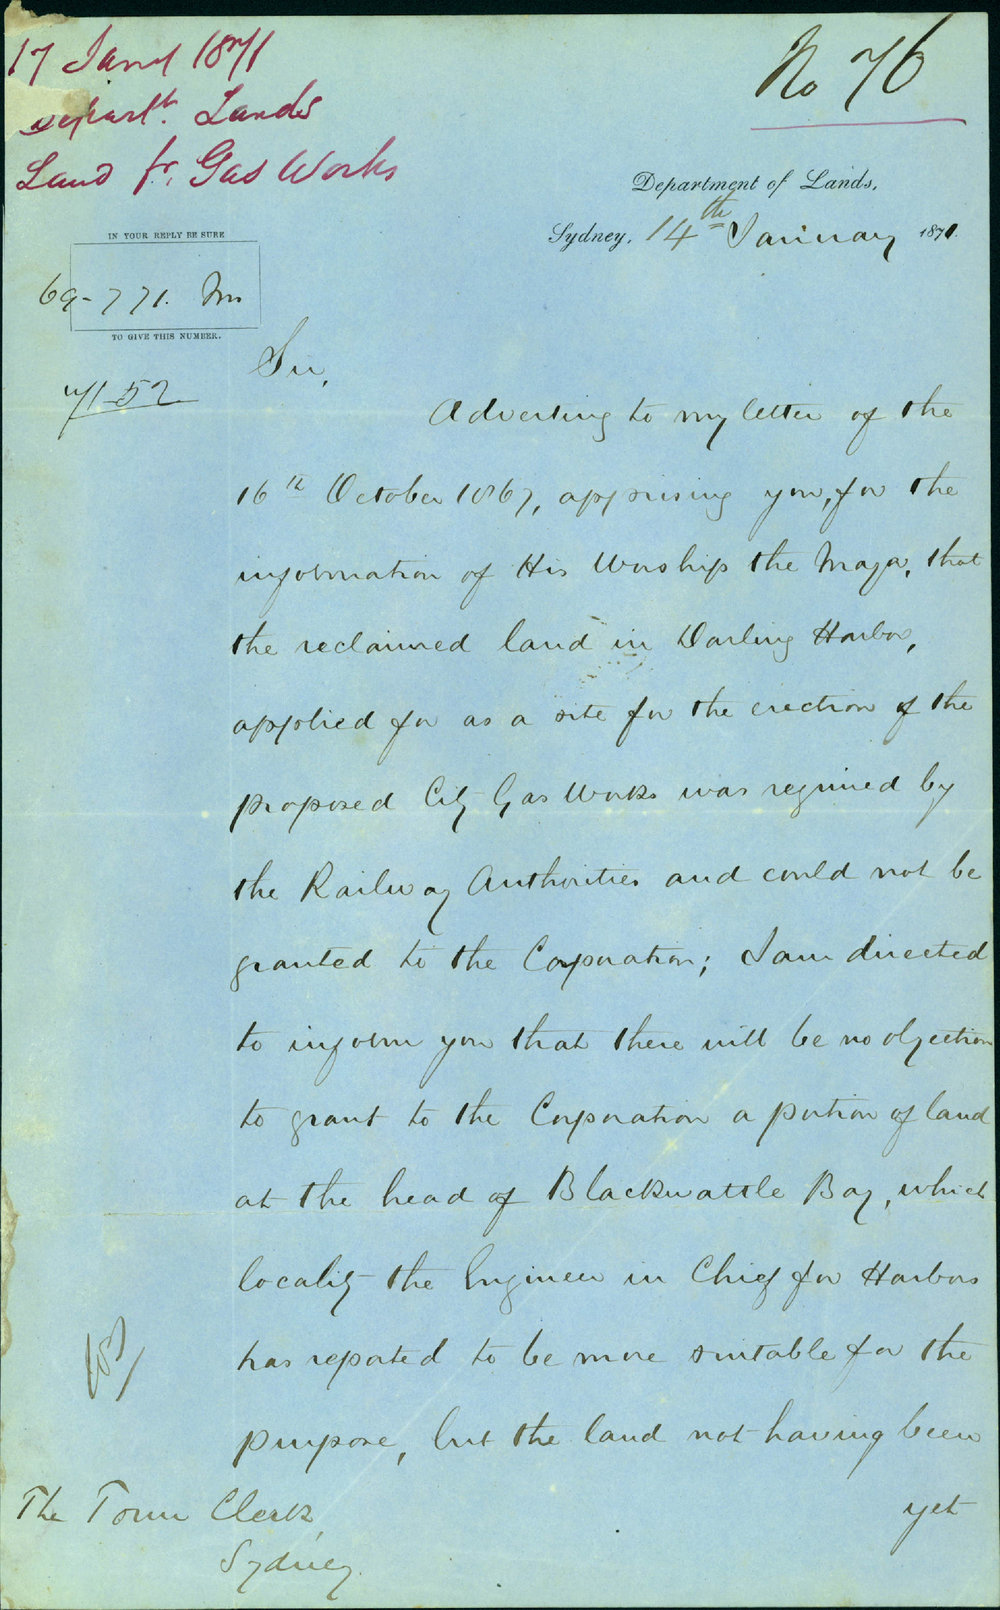 17 Jany 1871
Departt. Lands
Land fr. Gas Works
No 76
Department of Lands,
Sydney, 14th January 1871.
IN YOUR REPLY BE SURE
69-771. Mis
TO GIVE THIS NUMBER.
71-52
Sir,
Adverting to my letter of the
16th October 1867, apprising you, for the
information of His Worship the Mayor, that
the reclaimed land in Darling Harbor,
applied for as a site for the erection of the
proposed City Gas Works was required by
the Railway Authorities and could not be
granted to the Corporation; I am directed
to inform you that there will be no objection
to grant to the Corporation a portion of land
at the head of Blackwattle Bay, which
locality the Engineer in Chief for Harbors
has reported to be more suitable for the
purpose, but the land not having been
yet
The Town Clerk,
Sydney.